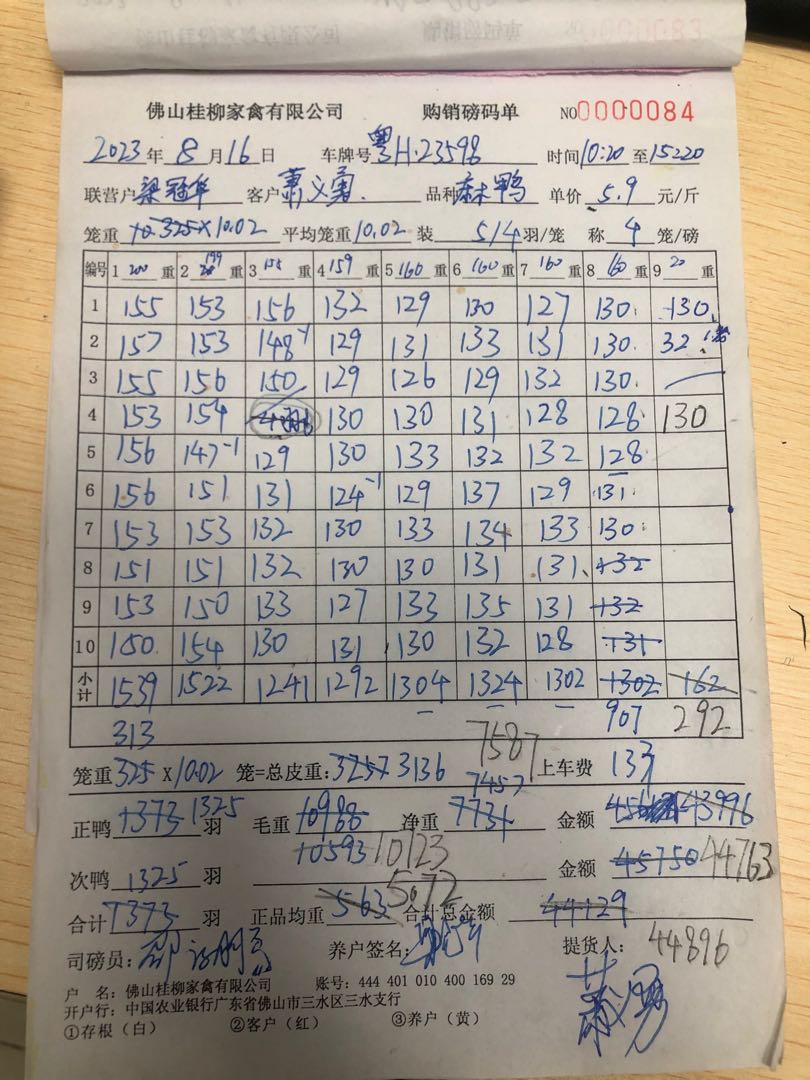 佛山桂柳家禽有限公司 购销磅码单 NO0000084
2023年8月16日 车牌号粤H·23598 时间10:20至15:20
联营户梁冠华 客户萧义勇 品种麻鸭 单价5.9元/斤
笼重325×10.02 平均笼重10.02 装5/4羽/笼 称4笼/磅
编号 1 200 重 2 199 重 3 155 重 4 159 重 5 160 重 6 160 重 7 160 重 8 160 重 9 20 重
1 155 153 156 132 129 130 127 130 130
2 157 153 148-1 129 131 133 131 130 32
3 155 156 150 129 126 129 132 130
4 153 154 130 130 131 128 128 130
5 156 147-1 129 130 133 132 132 128
6 156 151 131 124-1 129 137 129 131
7 153 153 132 130 133 134 133 130
8 151 151 132 130 130 131 131 132
9 153 150 133 127 133 135 131 132
10 150 154 130 131 130 132 128 131
小计 1539 1522 1241 1292 1304 1324 1302 1302 162
907 292
313 7587
笼重325×10.02 笼=总皮重:3257 3136 7457 上车费 133
正鸭1373 1325羽 毛重10988 净重7731 金额 43996
10593 10123
次鸭1325羽 金额45750 44763
合计1373羽 正品均重563 5.72 合计总金额44129
司磅员: 养户签名: 提货人: 44896
户 名:佛山桂柳家禽有限公司 账号:444 401 010 400 169 29
开户行:中国农业银行广东省佛山市三水区三水支行
①存根(白) ②客户(红) ③养户(黄)
萧义勇